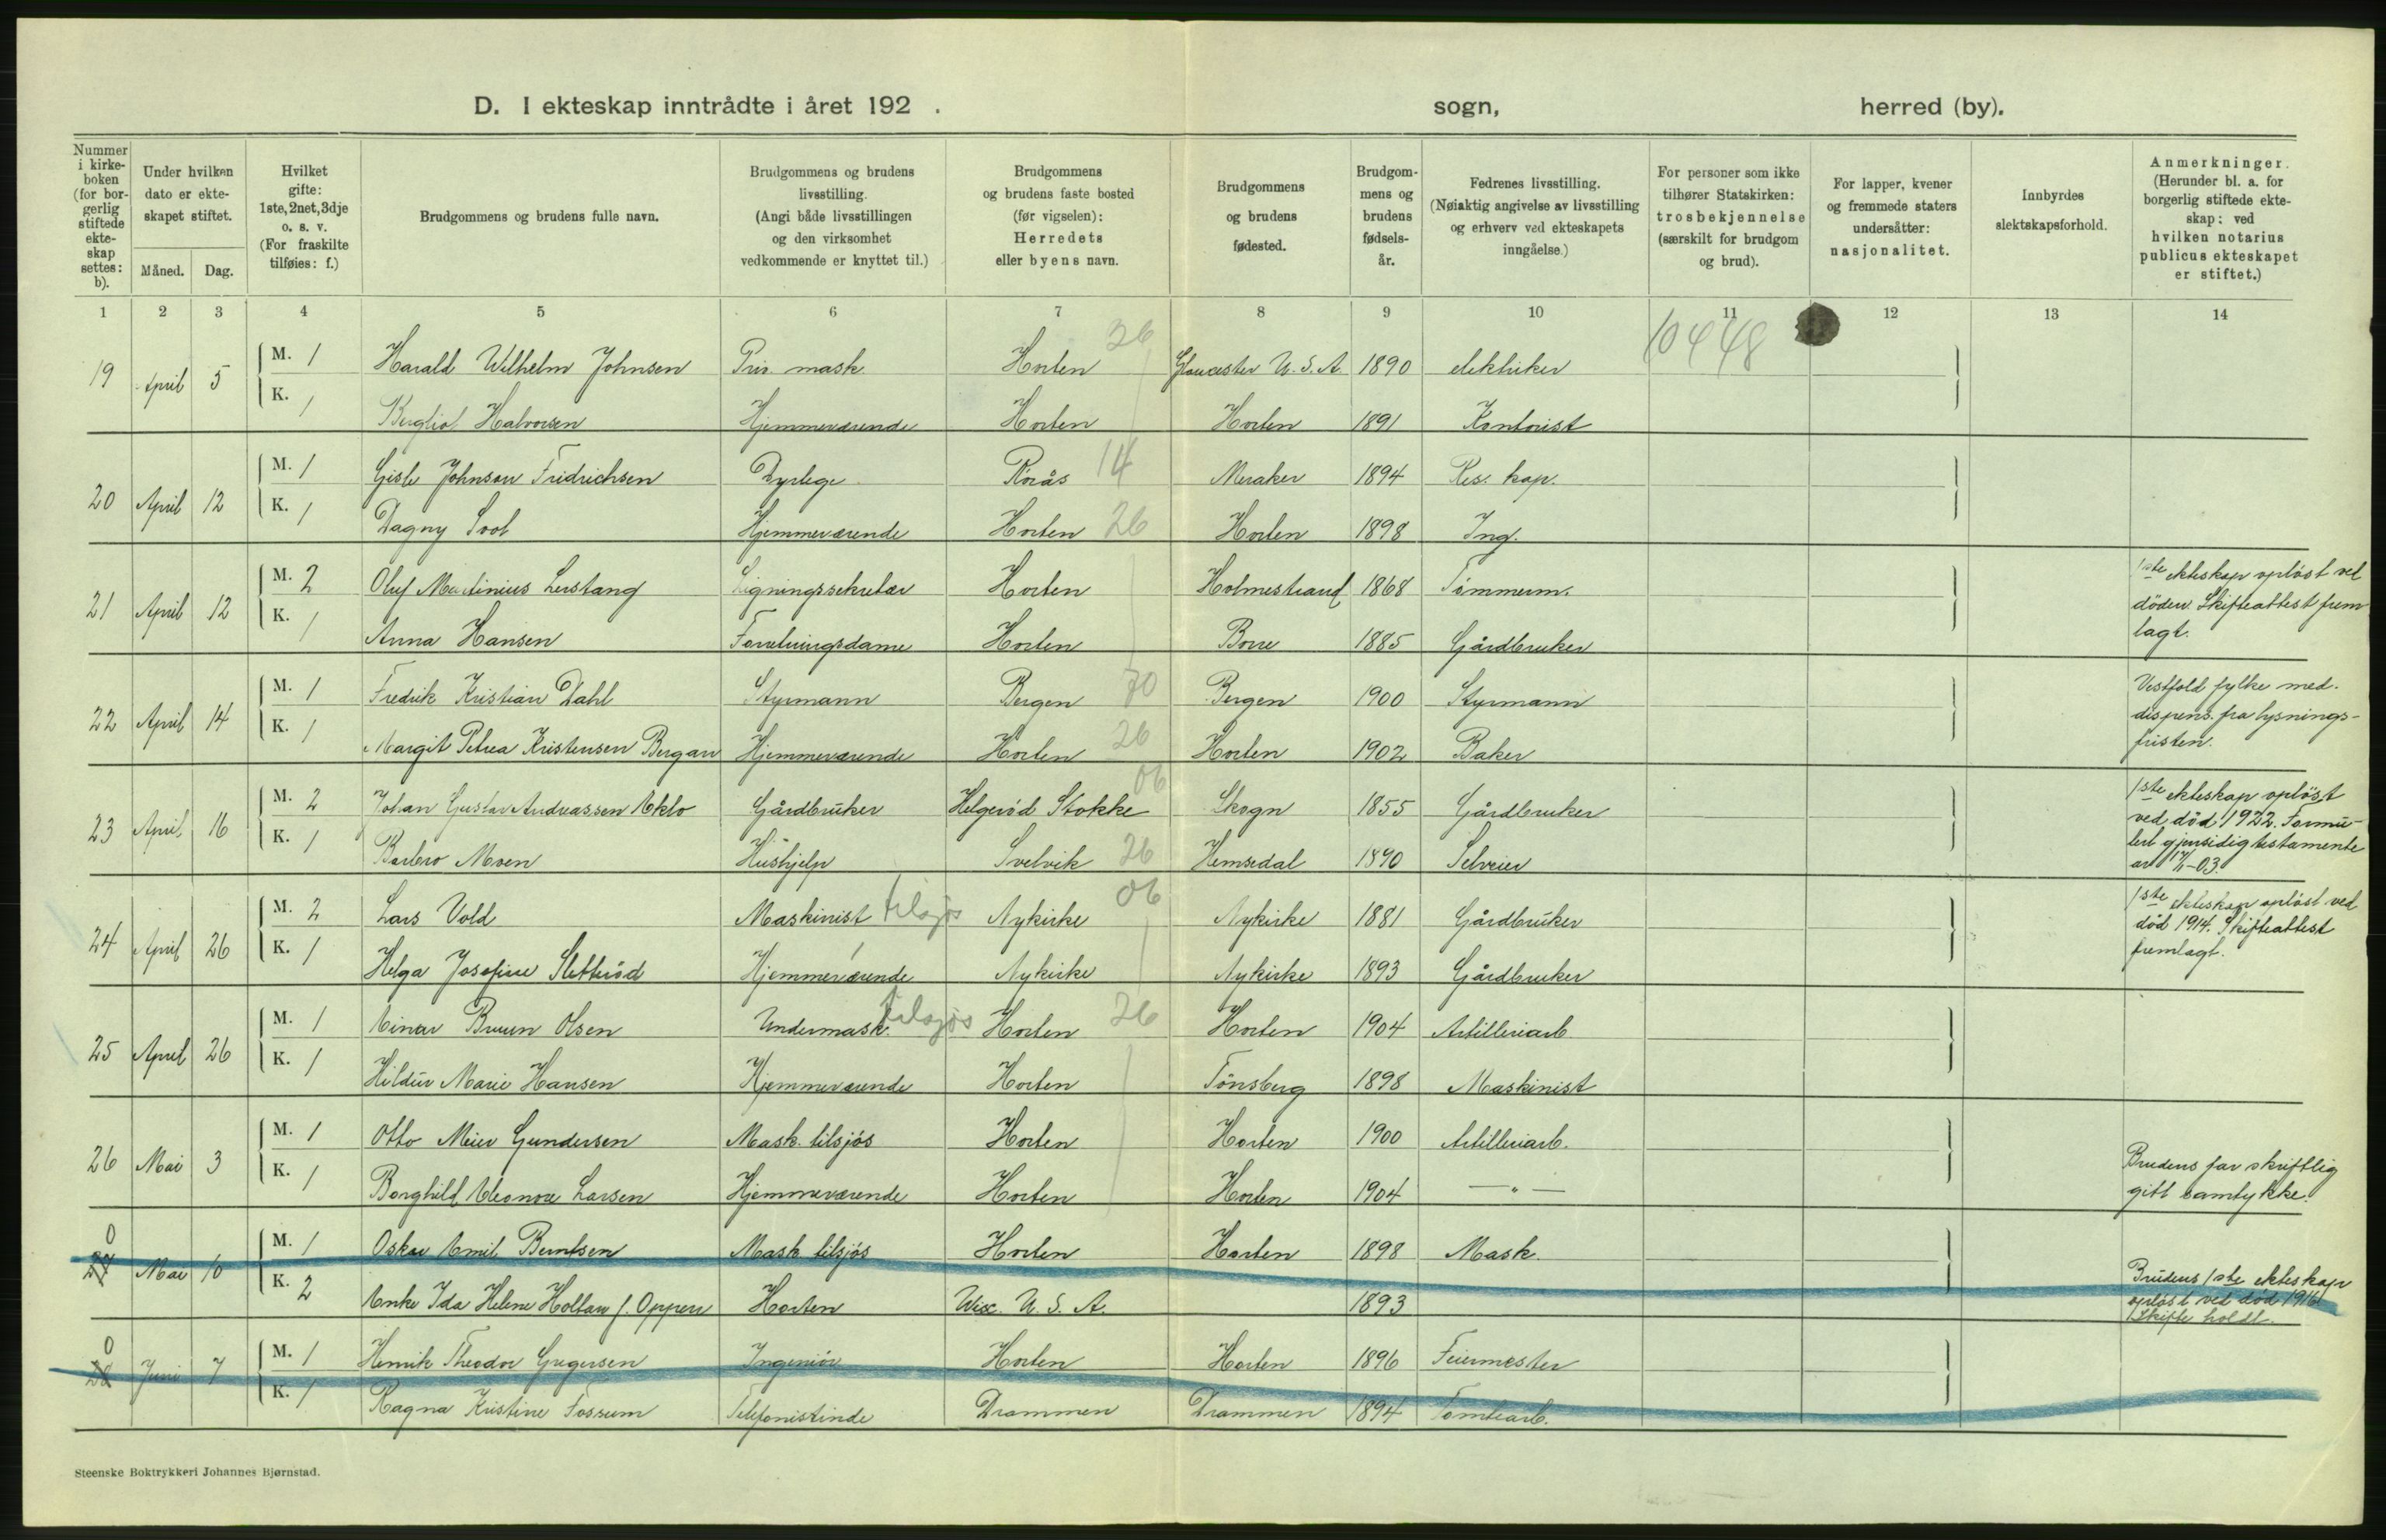 D. I ekteskap inntrådte i året 192 . sogn, herred (by).
Nummer i kirke-boken (for bor-gerlig stiftede ekte-skap settes: b).
Under hvilken dato er ekte-skapet stiftet.
Måned. Dag.
Hvilket gifte: 1ste, 2net, 3dje o. s. v. (For fraskilte tilføies: f.)
Brudgommens og brudens fulle navn.
Brudgommens og brudens livsstilling. (Angi både livsstillingen og den virksomhet vedkommende er knyttet til.)
Brudgommens og brudens faste bosted (før vigselen): Herredets eller byens navn.
Brudgommens og brudens fødested.
Brudgom-mens og brudens fødsels-år.
Fedrenes livsstilling. (Nøiaktig angivelse av livsstilling og erhverv ved ekteskapets inngåelse.)
For personer som ikke tilhører Statskirken: trosbekjennelse (særskilt for brudgom og brud).
For lapper, kvener og fremmede staters undersåtter: nasjonalitet.
Innbyrdes slektskapsforhold.
Anmerkninger. (Herunder bl. a. for borgerlig stiftede ekte-skap: ved hvilken notarius publicus ekteskapet er stiftet.)
1 2 3 4 5 6 7 8 9 10 11 12 13 14
19 April 5 M. 1 Harald Wilhelm Johnsen Priv. mask. Horten 26 Gloucester U.S.A. 1890 elektriker 10448
K. 1 Bergliot Halvorsen Hjemmeværende Horten Horten 1891 Kontorist
20 April 12 M. 1 Gisle Johnson Fridrichsen Dyrlege Rørås 14 Meraker 1894 Res. kap.
K. 1 Dagny Hjemmeværende Horten 26 Horten 1898 Ing.
21 April 12 M. 2 Oluf Martinius Lerstang Ligningssekretær Horten Holmestrand 1868 Tømmerm.
K. 1 Anna Hansen Forretningsdame Horten Borre 1885 Gårdbruker
1ste ekteskap opløst ved
døden. Skifteattest frem
lagt.
22 April 14 M. 1 Fredrik Kristian Dahl Styrmann Bergen 70 Bergen 1900 Styrmann
K. 1 Margit Petrea Kristensen Bergan Hjemmeværende Horten 26 Horten 1902 Baker
Vestfold fylke med.
dispens. fra lysnings-
fristen.
23 April 16 M. 2 Johan Gustav Andreassen Eklo Gårdbruker Helgerød Stokke 06 Skogn 1855 Gårdbruker
K. 1 Barbro Moen Hushjelp Svelvik 26 Hemsedal 1890 Selveier
1ste ekteskap opløst
ved død 1922. Formu-
lert gjensidig testamente
24 April 26 M. 2 Lars Vold Maskinist tilsjøs Nykirke 06 Nykirke 1881 Gårdbruker
K. 1 Helga Josefine Sletterød Hjemmeværende Nykirke Nykirke 1893 Gårdbruker
1ste ekteskap opløst ved
død 1914. Skifteattest
fremlagt.
25 April 26 M. 1 Einar Bruun Olsen Undermask. tilsjøs Horten 26 Horten 1904 Artilleriarb.
K. 1 Hildur Marie Hansen Hjemmeværende Horten Tønsberg 1898 Maskinist
26 Mai 3 M. 1 Otto Meier Gundersen Mask. tilsjøs Horten Horten 1900 Artilleriarb.
K. 1 Borghild Eleonore Larsen Hjemmeværende Horten Horten 1904 — " —
Brudens far skriftlig
gitt samtykke.
0 27 Mai 10 M. 1 Oskar Emil Berntsen Mask. tilsjøs Horten Horten 1898 Mask.
K. 2 Enke Ida Helene Holtan f. Oppen Horten Wisc. U. S. A. 1893
Brudens 1ste ekteskap
opløst ved død 1916
Skifte holdt.
0 28 Juni 7 M. 1 Henrik Theodor Gregersen Ingeniør Horten Horten 1896 Feiermester
K. 1 Ragna Kristine Fossum Telefonistinde Drammen Drammen 1894 Tomtearb.
Steenske Boktrykkeri Johannes Bjørnstad.